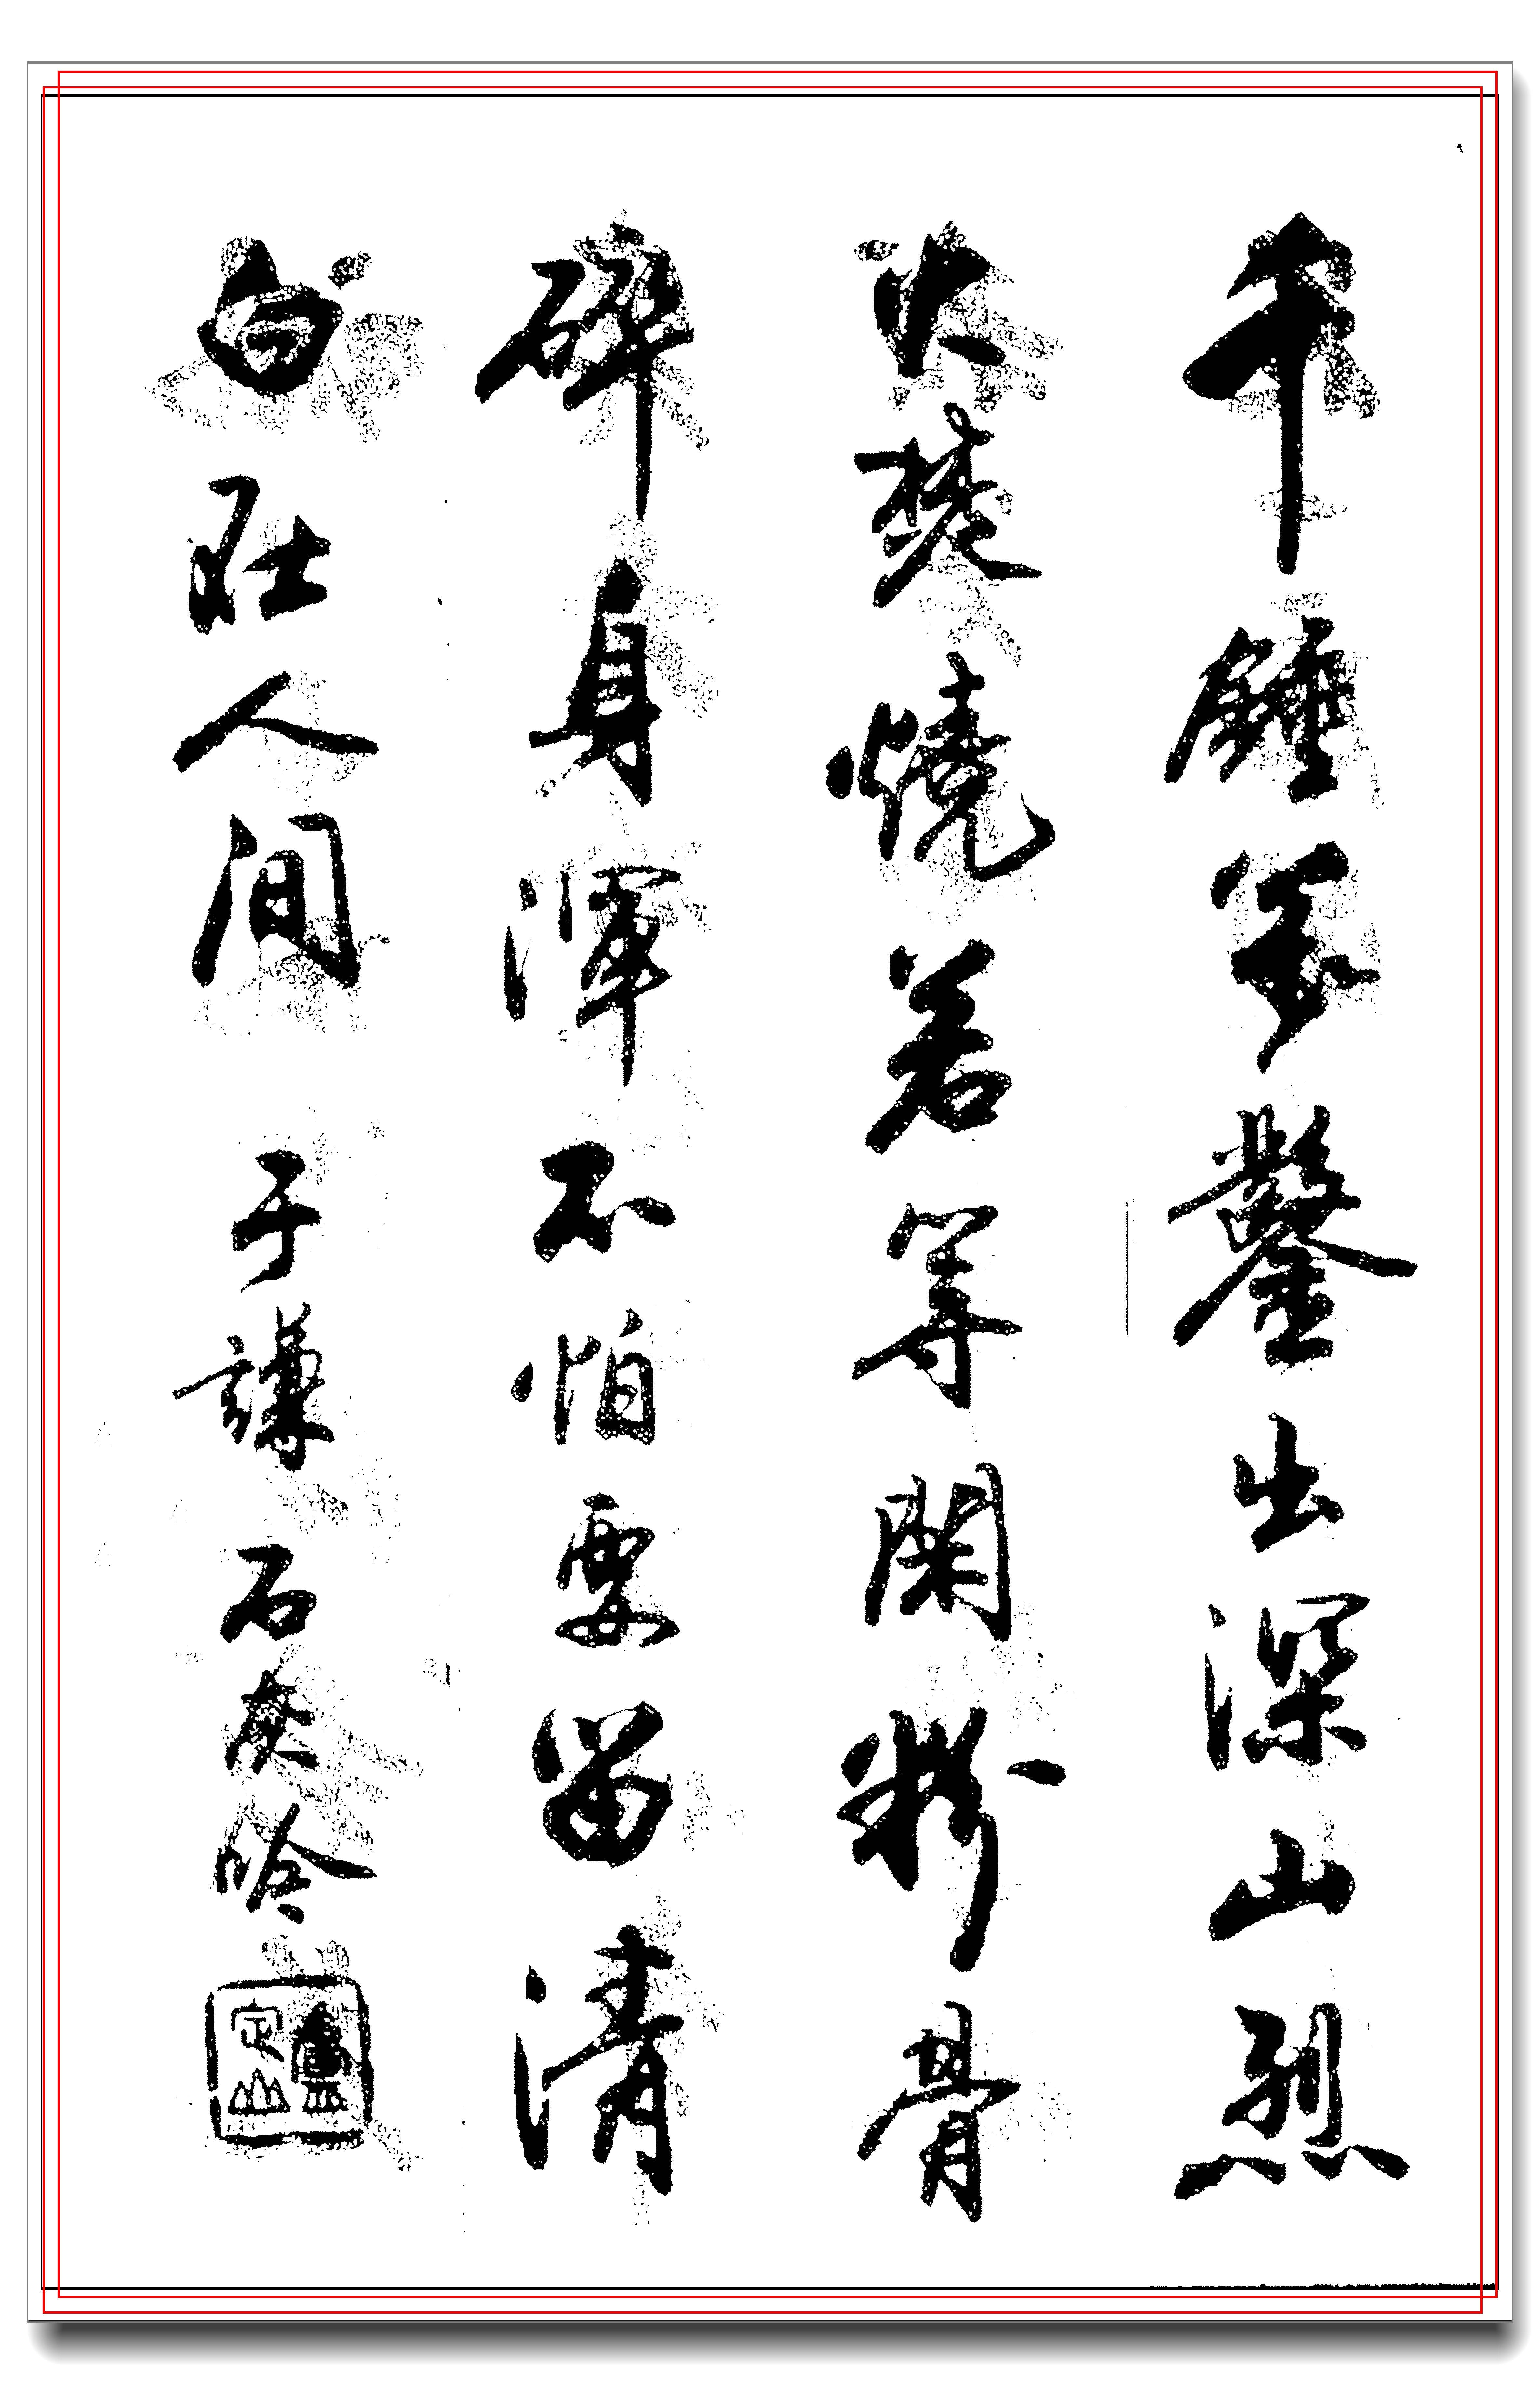 千錘萬鑿出深山烈
火焚燒若等閑粉骨
碎身渾不怕要留清
白在人間 于謙石灰吟